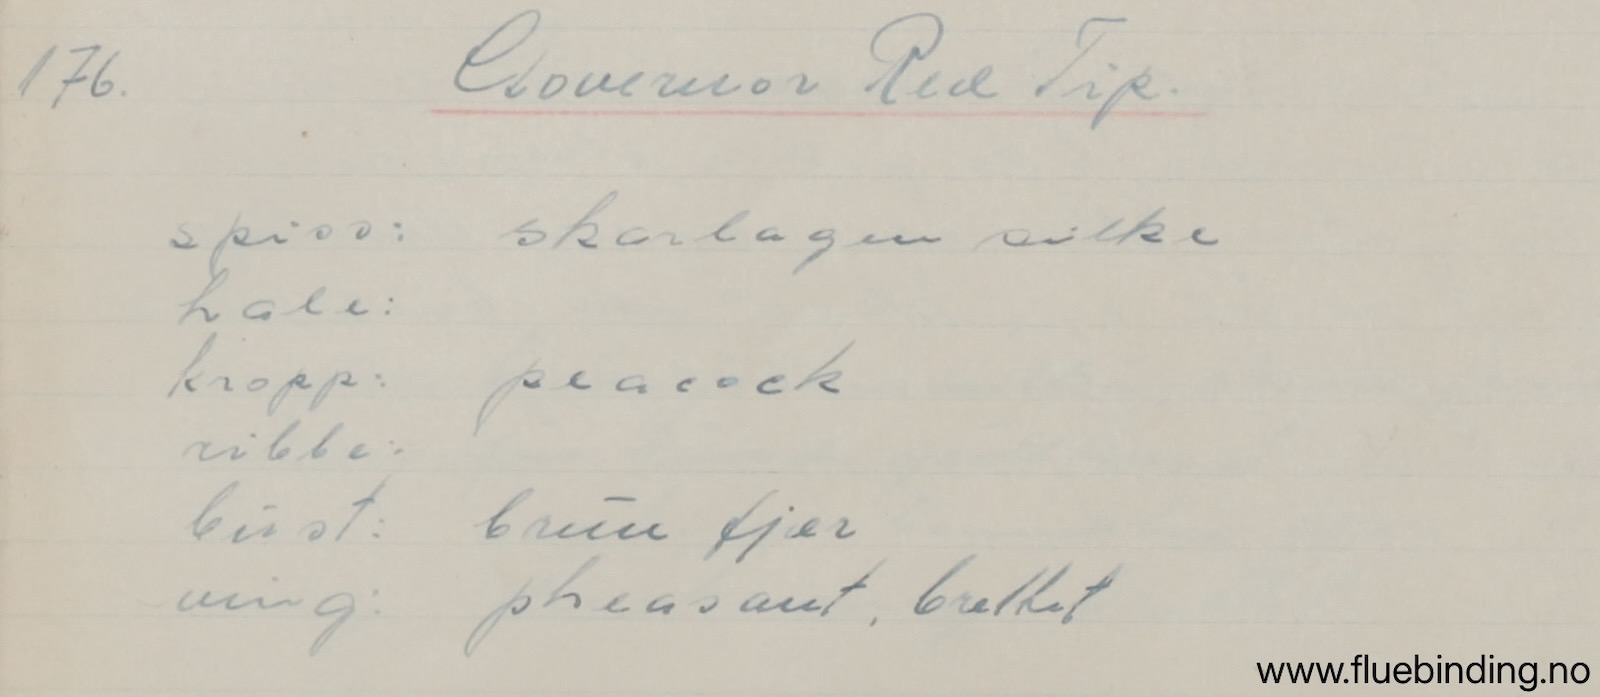 176. Governor Red Tip.
spiss: skarlagen silke
hale:
kropp: peacock
ribbe:
bust: brun fjær
ving: pheasant, brettet
www.fluebinding.no